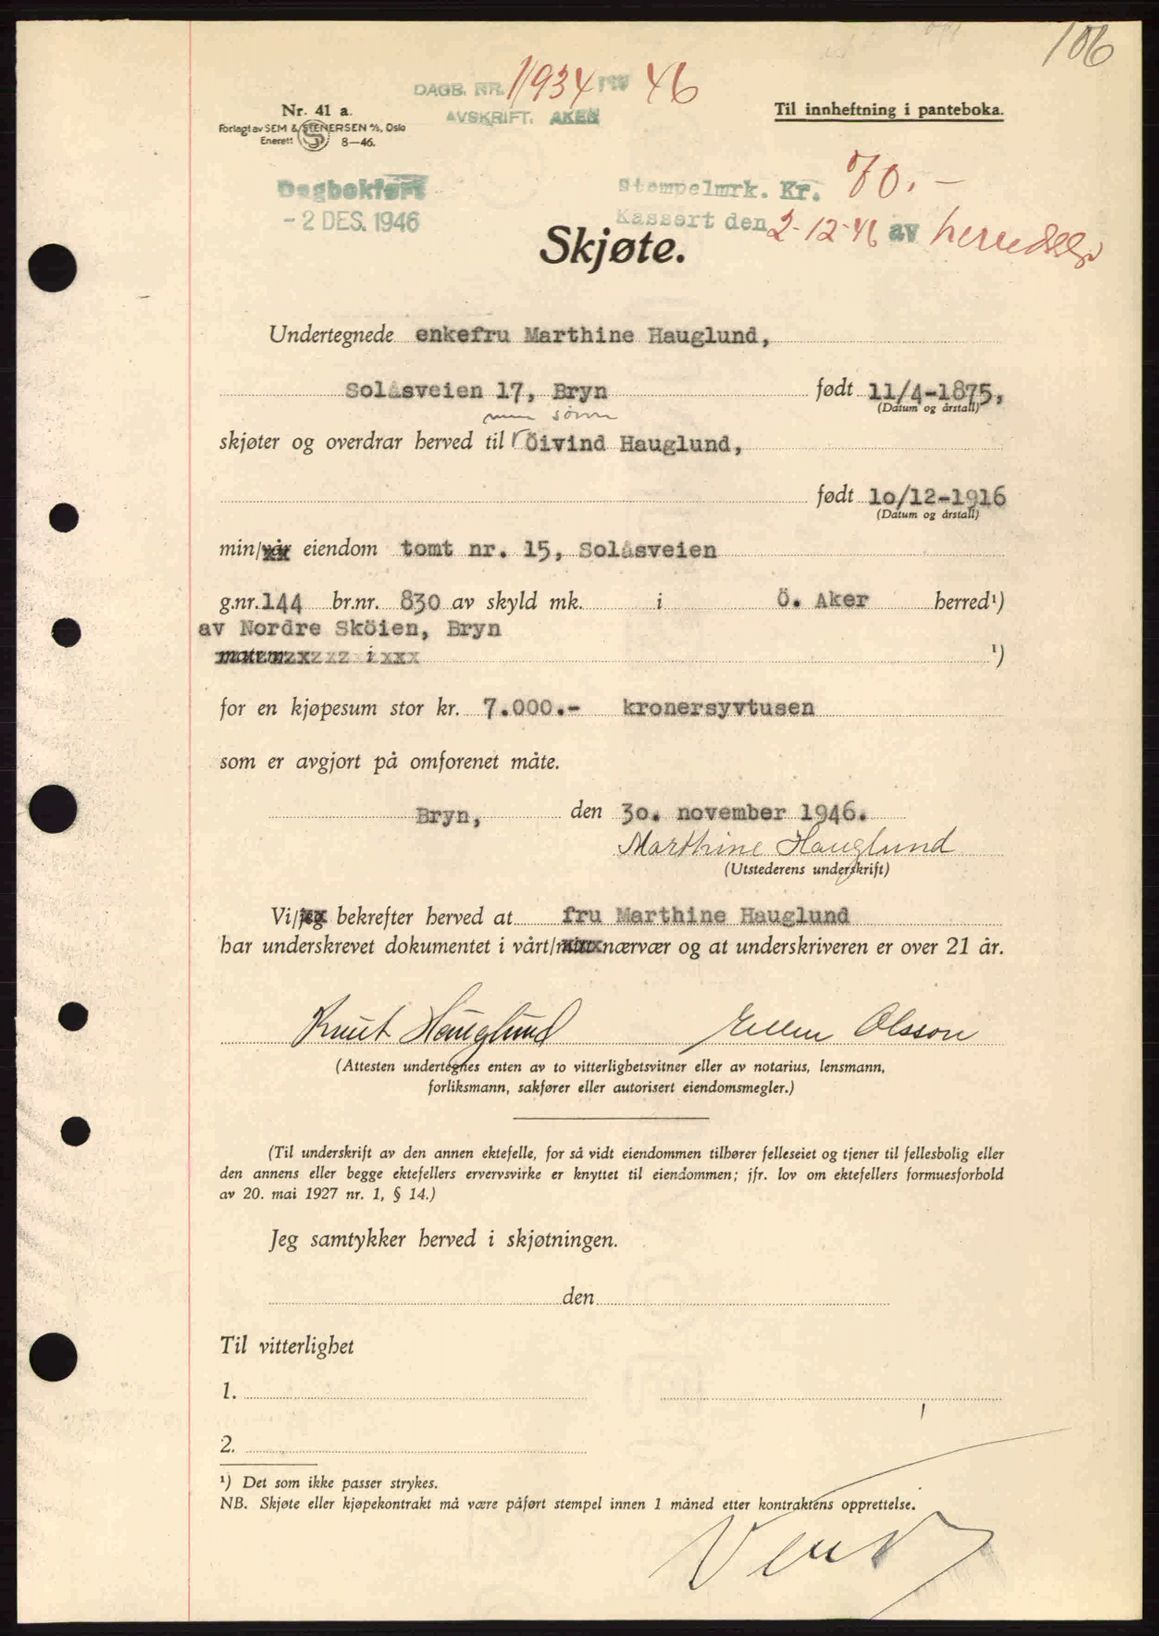 106
DAGB. NR. 11934 1946
AVSKRIFT. AKER
Nr. 41 a.
Forlagt av SEM & STENERSEN A/S, Oslo
Enerett 8—46.
Til innheftning i panteboka.
Dagbokført
- 2 DES. 1946
Stempelmrk. Kr. 70.-
Kassert den 2-12-46 av
Skjøte.
Undertegnede enkefru Marthine Hauglund,
Solåsveien 17, Bryn født 11/4-1875,
(Datum og årstall)
min sønn
skjøter og overdrar herved til Öivind Hauglund,
født 10/12-1916
(Datum og årstall)
min/vår eiendom tomt nr. 15, Solåsveien
g.nr. 144 br.nr. 830 av skyld mk. i Ö. Aker herred¹)
av Nordre Sköien, Bryn
i ¹)
for en kjøpesum stor kr. 7.000.- kronersyvtusen
som er avgjort på omforenet måte.
Bryn, den 30. november 1946.
Marthine Hauglund
(Utstederens underskrift)
Vi/jeg bekrefter herved at fru Marthine Hauglund
har underskrevet dokumentet i vårt/mitt nærvær og at underskriveren er over 21 år.
Knut Hauglund Ellen Olsson
(Attesten undertegnes enten av to vitterlighetsvitner eller av notarius, lensmann,
forliksmann, sakfører eller autorisert eiendomsmegler.)
(Til underskrift av den annen ektefelle, for så vidt eiendommen tilhører felleseiet og tjener til fellesbolig eller
den annens eller begge ektefellers ervervsvirke er knyttet til eiendommen; jfr. lov om ektefellers formuesforhold
av 20. mai 1927 nr. 1, § 14.)
Jeg samtykker herved i skjøtningen.
den
Til vitterlighet
1.
2.
¹) Det som ikke passer strykes.
NB. Skjøte eller kjøpekontrakt må være påført stempel innen 1 måned etter kontraktens opprettelse.
Vend